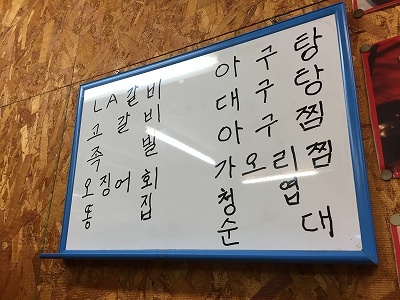 LA갈비
고갈비
족발
오징어회
똥집
아구탕
대구탕
아구찜
가오리찜
청엽
순대